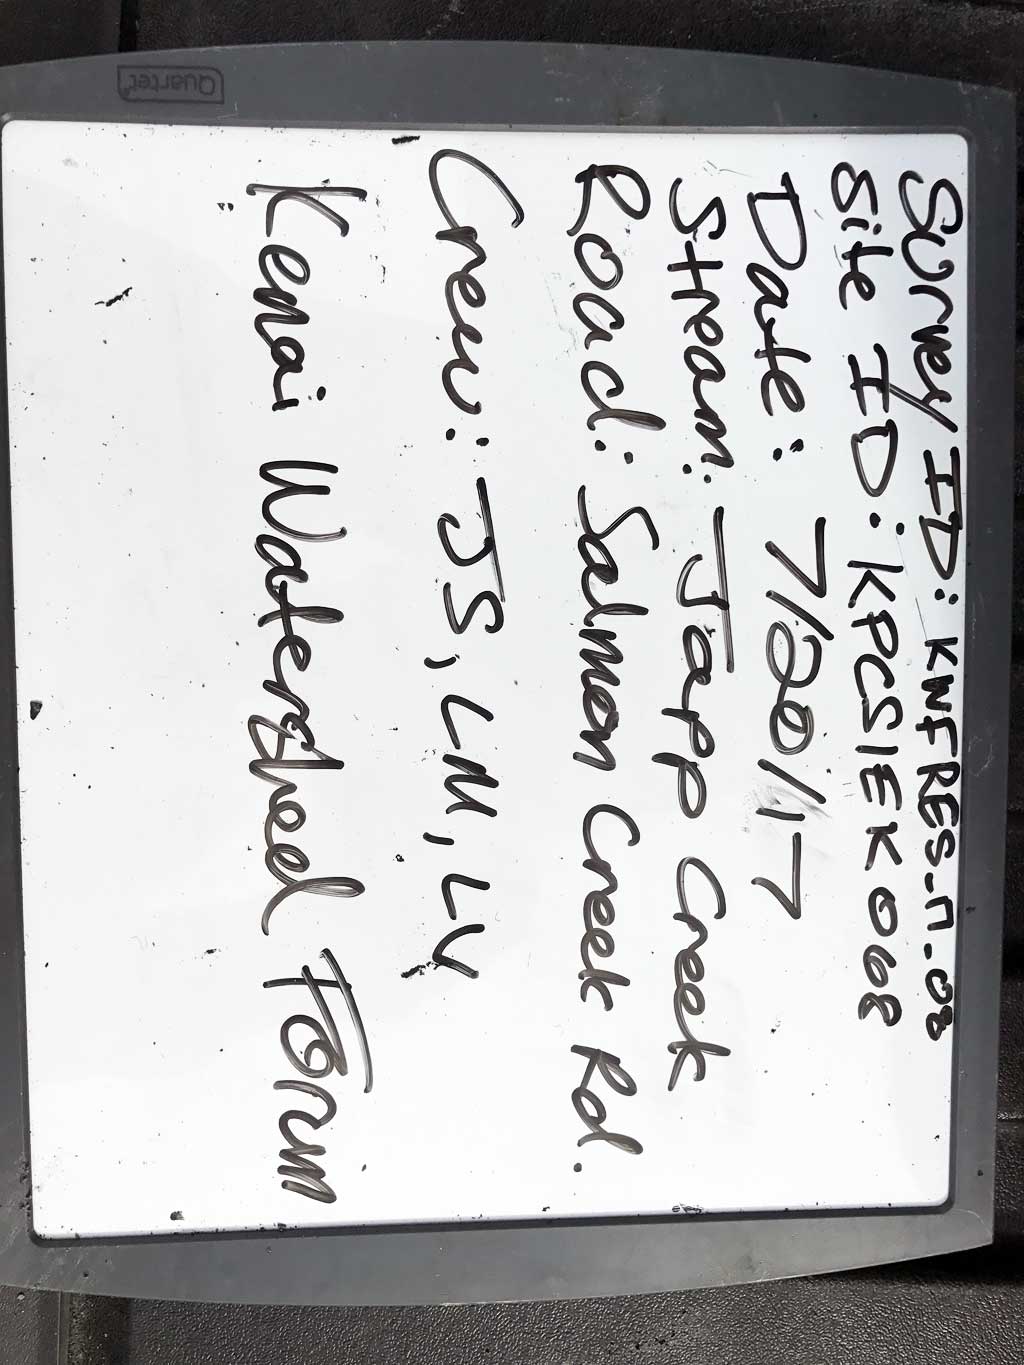 Survey ID: KWFRES-17-08
Site ID: KPCSIEK068
Date: 7/20/17
Stream: Japp Creek
Road: Salmon Creek Rd.
Crew: JS, LM, LV
Kenai Watershed Forum
Quartet